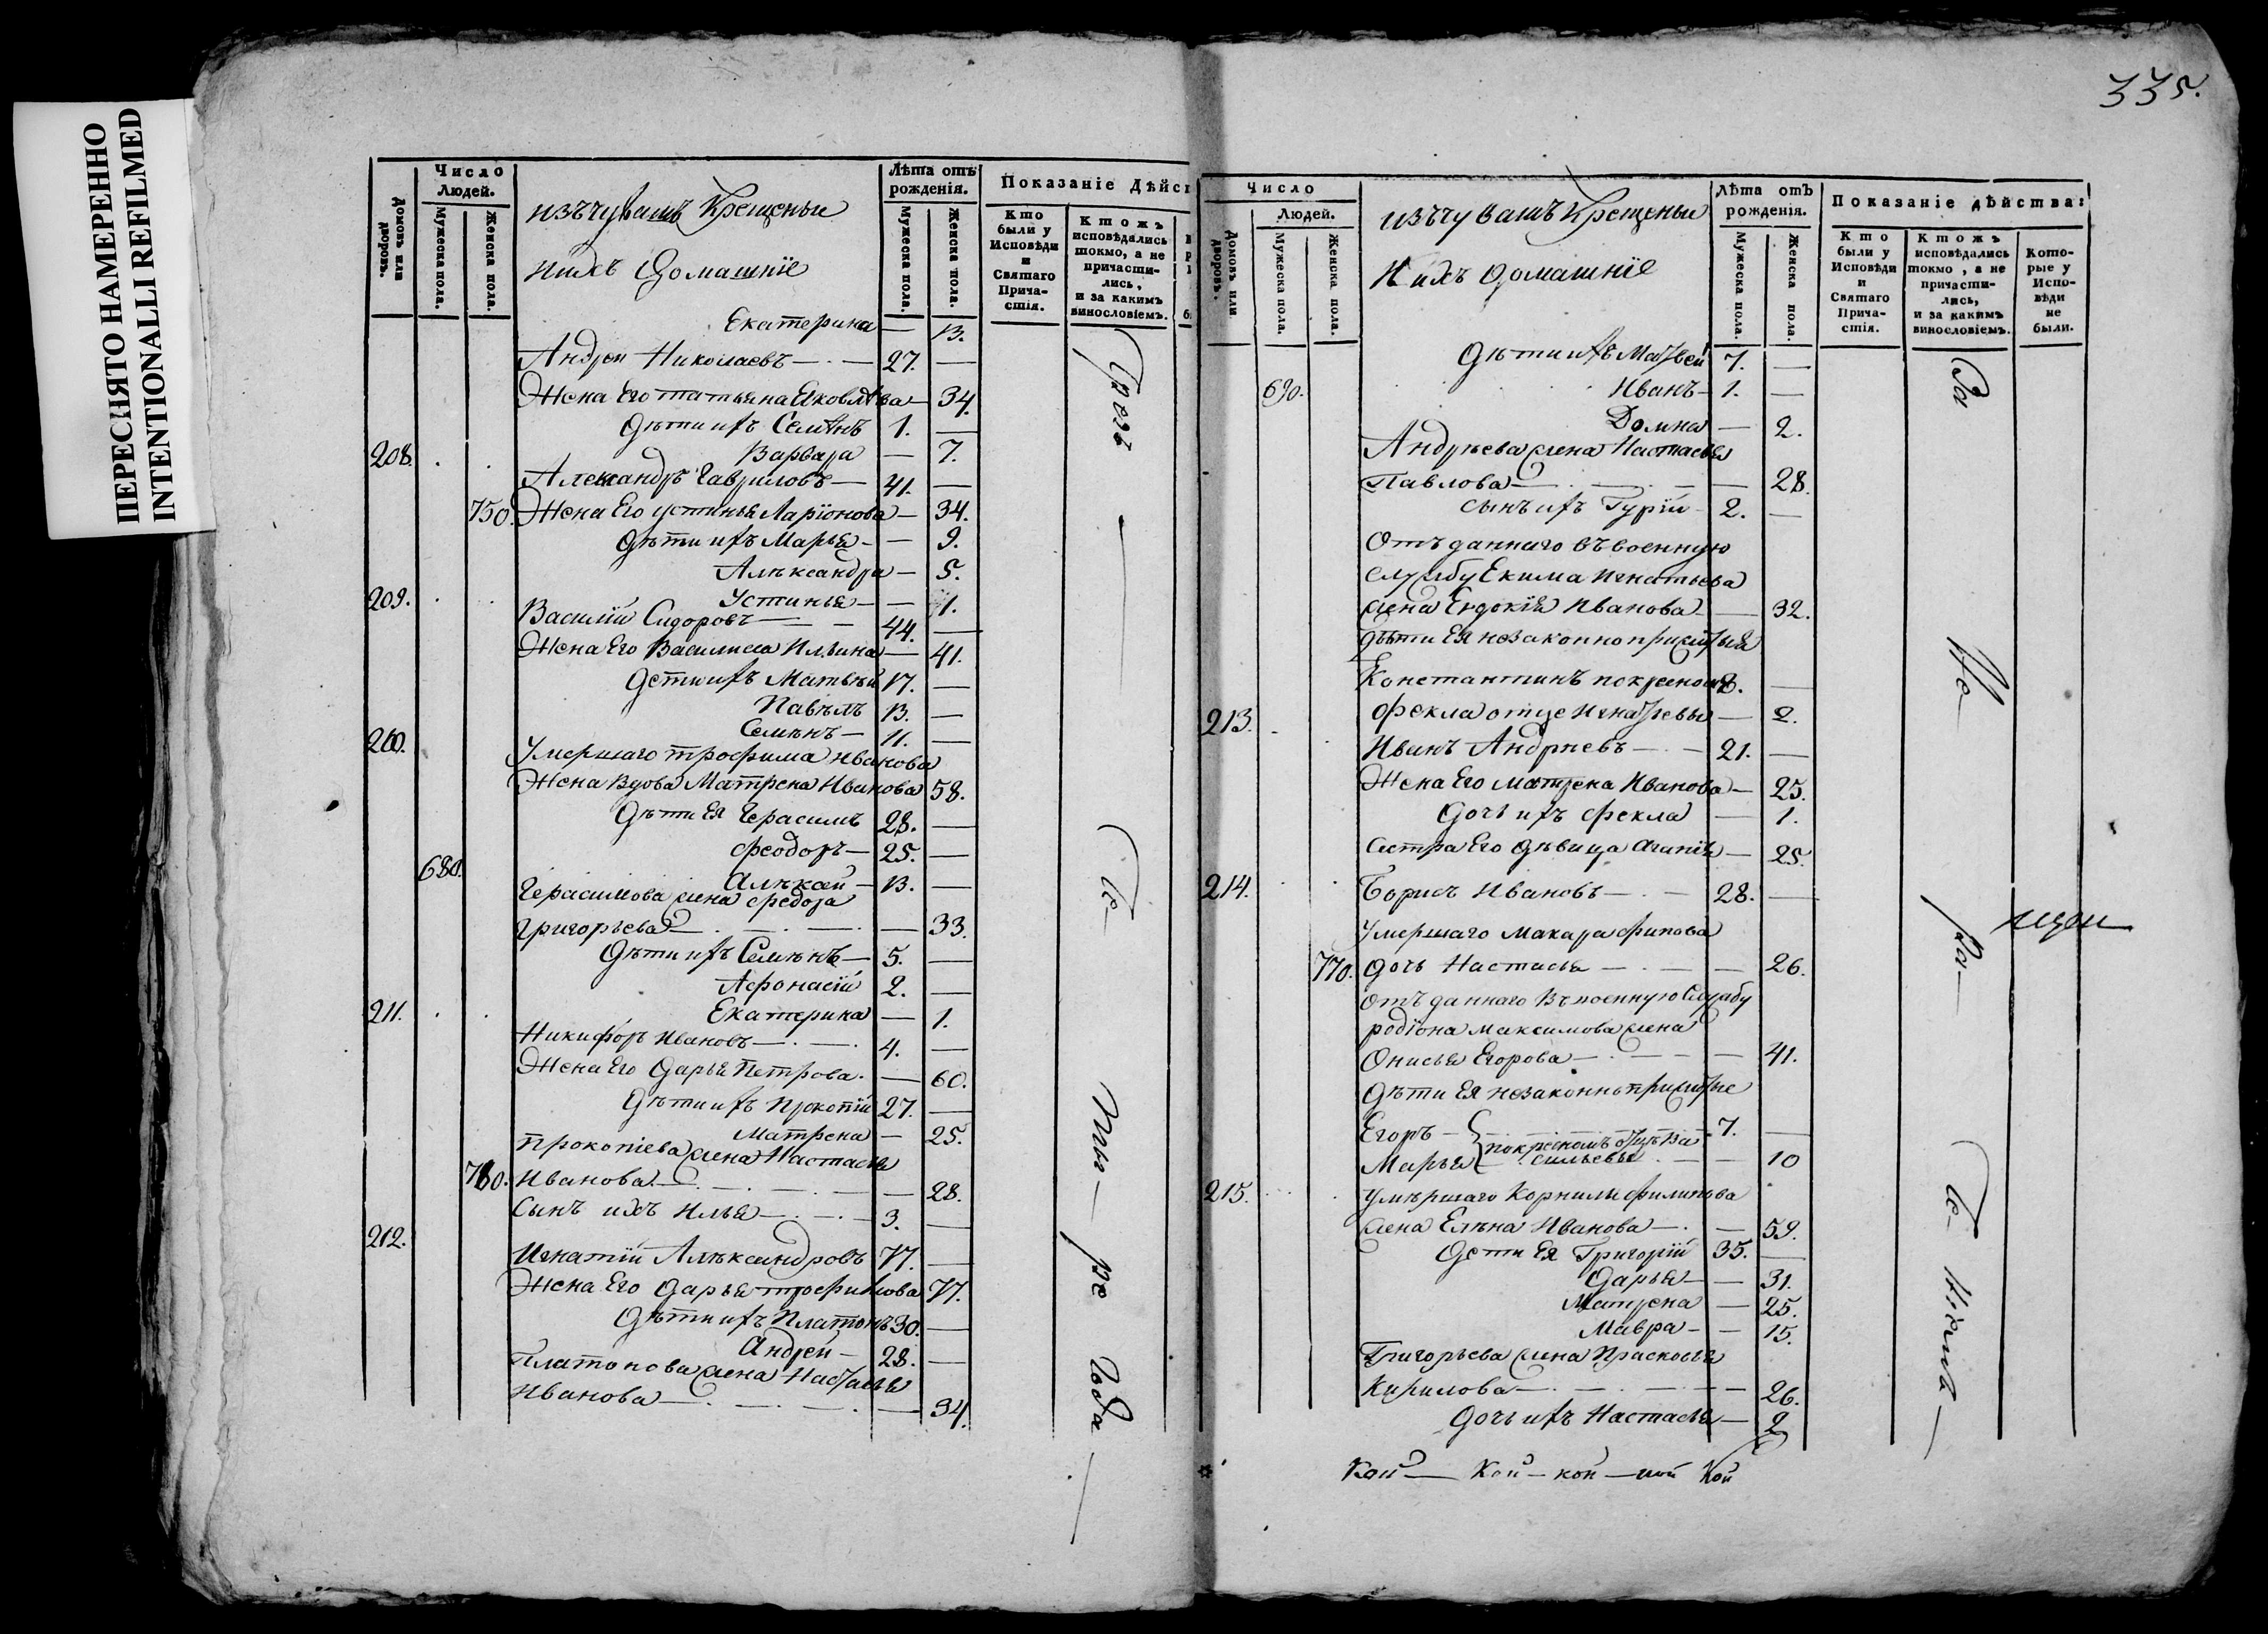 ПЕРЕСНЯТО НАМЕРЕННО
INTENTIONALLI REFILMED
335.
Число
Людей.
Домовъ или дворовъ.
Мужеска пола.
Женска пола.
изъ чувашъ Крещеныи
ихъ домашніе
Лѣта отъ рожденія.
Мужеска пола.
Женска пола.
Показаніе Дѣйс
Кто были у Исповѣди и Святаго Причастія.
Ктожъ исповѣдались токмо, а не причастились, и за какимъ винословіемъ.
Екатерина — 13.
Андреи Николаевъ — 27. —
Жена Его татьяна Яковлѣва — 34.
дѣти ихъ Семѣнъ 1. —
208. Варвара — 7.
Александръ Гавриловъ — 41. —
750. Жена Его устинья Ларіонова — 34.
дѣти ихъ Марья — 9.
Алѣксандра — 5.
209. Устинья — 1.
Василіи Сидоровъ — 44. —
Жена Его Василиса Ильина — 41.
дети ихъ Матвѣи 17. —
Павѣлъ 13. —
Семѣнъ — 11. —
210. Умершаго трофима иванова
Жена вдова Матрена Иванова 58.
дѣти Ея Герасимъ 28. —
Феодоръ — 25. —
680. Алѣксѣй — 13. —
Герасимова жена Федора
Григорьева — 33.
дѣти ихъ Семѣнъ — 5. —
Афонасіи 2. —
211. Екатерина — 1.
Никифоръ Ивановъ — 4. —
Жена Его дарья Петрова. — 60.
дѣти ихъ Прокопіи 27. —
Матрена — 25.
Прокопіева жена Настасья
760. Иванова — 28.
Сынъ ихъ Илья — 3. —
212. Игнатіи Алѣксандровъ 77. —
Жена Его дарья трофимова 77.
дѣти ихъ Платонъ 30. —
Андрей — 28. —
Платонова жена Настасья
Иванова — 34.
Число
Людей.
Домовъ или дворовъ.
Мужеска пола.
Женска пола.
изъ чувашъ Крещеныи
и ихъ домашніе
Лѣта отъ рожденія.
Мужеска пола.
Женска пола.
Показаніе дѣйства:
Кто были у Исповѣди и Святаго Причастія.
Ктожъ исповѣдались токмо, а не причастились, и за какимъ винословіемъ.
Которые у Исповѣди не были.
дѣти ихъ Матвеи 7. —
690. Иванъ — 1. —
Домна — 2.
Андрѣева жена Настасья
Павлова — 28.
сынъ ихъ Гурій 2. —
Отъданнаго въ военную
службу Екима Игнатьева
жена Евдокія Иванова — 32.
дѣти Ея незаконно прижитыя
Константинъ —
213. Фекла отце Игнатьевы — 2.
Иванъ Андрѣевъ — 21. —
Жена Его матрена Иванова — 25.
дочь ихъ Фекла — 1.
Сестра Его дѣвица Агапія — 25.
214. Борисъ Ивановъ — 28. —
умершаго Макара
770. дочь Настасья — 26.
отъданнаго въ военную службу
родіона Максимова жена
Онисья Егорова — 41.
дѣти Ея незаконно прижитые
Егоръ — 7. —
покресномъ отцѣ Ва
сильевы
Марья — 10
215. умѣршаго Корнилы филипова
жена Елѣна Иванова — 59.
дети Ея Григоріи 35. —
дарья — 31.
Матрена — 25.
Мавра — 15.
Григорьева жена Прасковья
Кирилова — 26.
дочь ихъ Настасья — 2